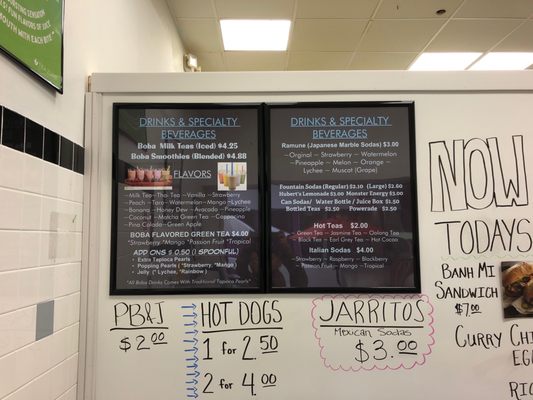 MOUTH WITH EACH
DRINKS & SPECIALTY
BEVERAGES
Boba Milk Teas (Iced) $4.25
Boba Smoothies (Blended) $4.88
FLAVORS
Milk Tea~Thai Tea ~Vanilla ~ Strawberry
Peach~ Taro~ Watermelon~ Mango ~Lychee
Banana ~ Honey Dew ~ Avocado ~ Pineapple
Coconut ~ Matcha Green Tea ~ Cappuccino
Pina Colada~ Green Apple
BOBA FLAVORED GREEN TEA $4.00
*Strawberry *Mango *Passion Fruit *Tropical
ADD ONS 0.50 (1 SPOONFUL)
Extra Tapioca Pearls
Popping Pearls ( *Strawberry, *Mango)
Jelly (* Lychee, *Rainbow)
*All Boba Drinks Comes With Traditional Tapioca Pearls*
DRINKS & SPECIALTY
BEVERAGES
Ramune (Japanese Marble Sodas) $3.00
~Orginal ~ Strawberry ~ Watermelon
~Pineapple ~ Melon ~ Orange
~Lychee ~ Muscat (Grape)
Fountain Sodas (Regular) $2.10 (Large) $2.60
Hubert's Lemonade $3.00 Monster Energy $3.00
Can Sodas/ Water Bottle / Juice Box $1.50
Bottled Teas $2.50 Powerade $2.50
Hot Teas $2.00
~Green Tea ~ Jasmine Tea ~ Oolong Tea
~Black Tea ~ Earl Grey Tea ~ Hot Cocoa
Italian Sodas $4.00
~Strawberry ~ Raspberry ~ Blackberry
~Passion Fruit ~ Mango ~ Tropical
NOW
TODAYS
BANH MI
SANDWICH
$7.00
CURRY CHI
EGG
RIC
PB&J
$2.00
HOT DOGS
1 for 2.50
2 for 4.00
JARRITOS
Mexican Sodas
$3.00